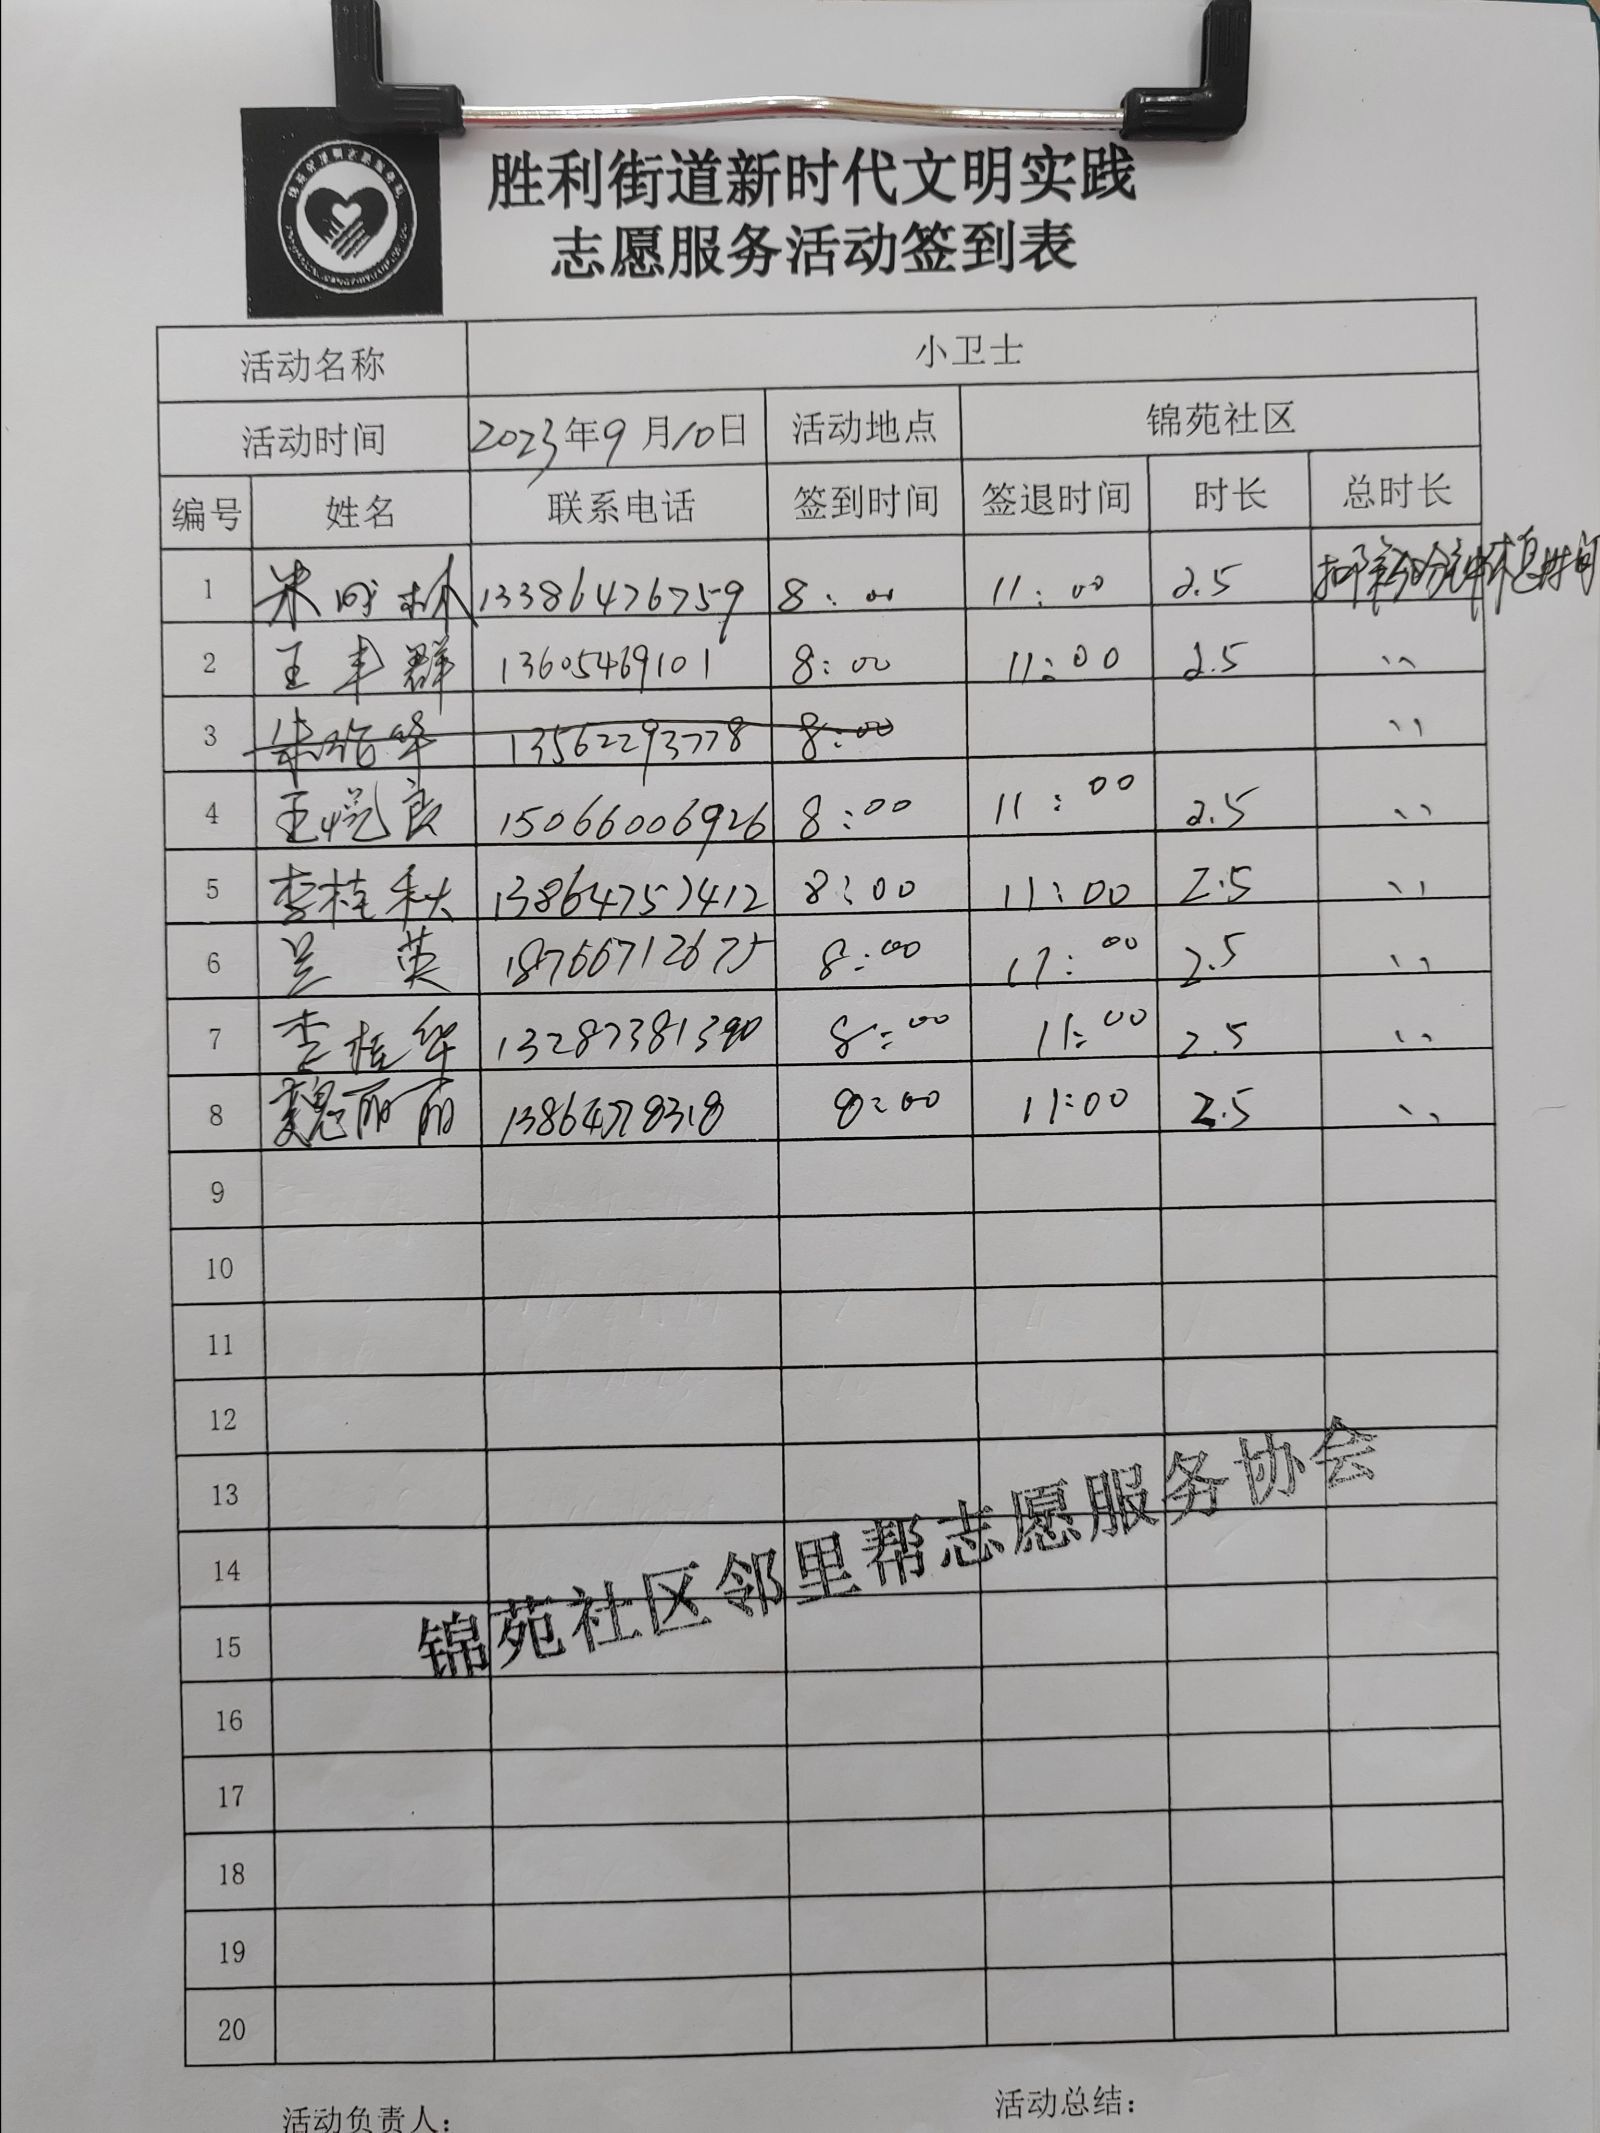 胜利街道新时代文明实践
志愿服务活动签到表
活动名称 小卫士
活动时间 2023年9月10日 活动地点 锦苑社区
编号 姓名 联系电话 签到时间 签退时间 时长 总时长
1 林 13386476759 8:00 11:00 2.5 扣除30分钟休息时间
2 王丰群 13605469101 8:00 11:00 2.5 、、
3 13562293778 8:00 、、
4 王悦良 15066006926 8:00 11:00 2.5 、、
5 李桂秋 13864757412 8:00 11:00 2.5 、、
6 吴英 18766712675 8:00 11:00 2.5 、、
7 李桂华 13287381390 8:00 11:00 2.5 、、
8 魏丽丽 8:00 11:00 2.5 、、
9
10
11
12
13
14
15
16
17
18
19
20
锦苑社区邻里帮志愿服务协会
活动负责人: 活动总结: